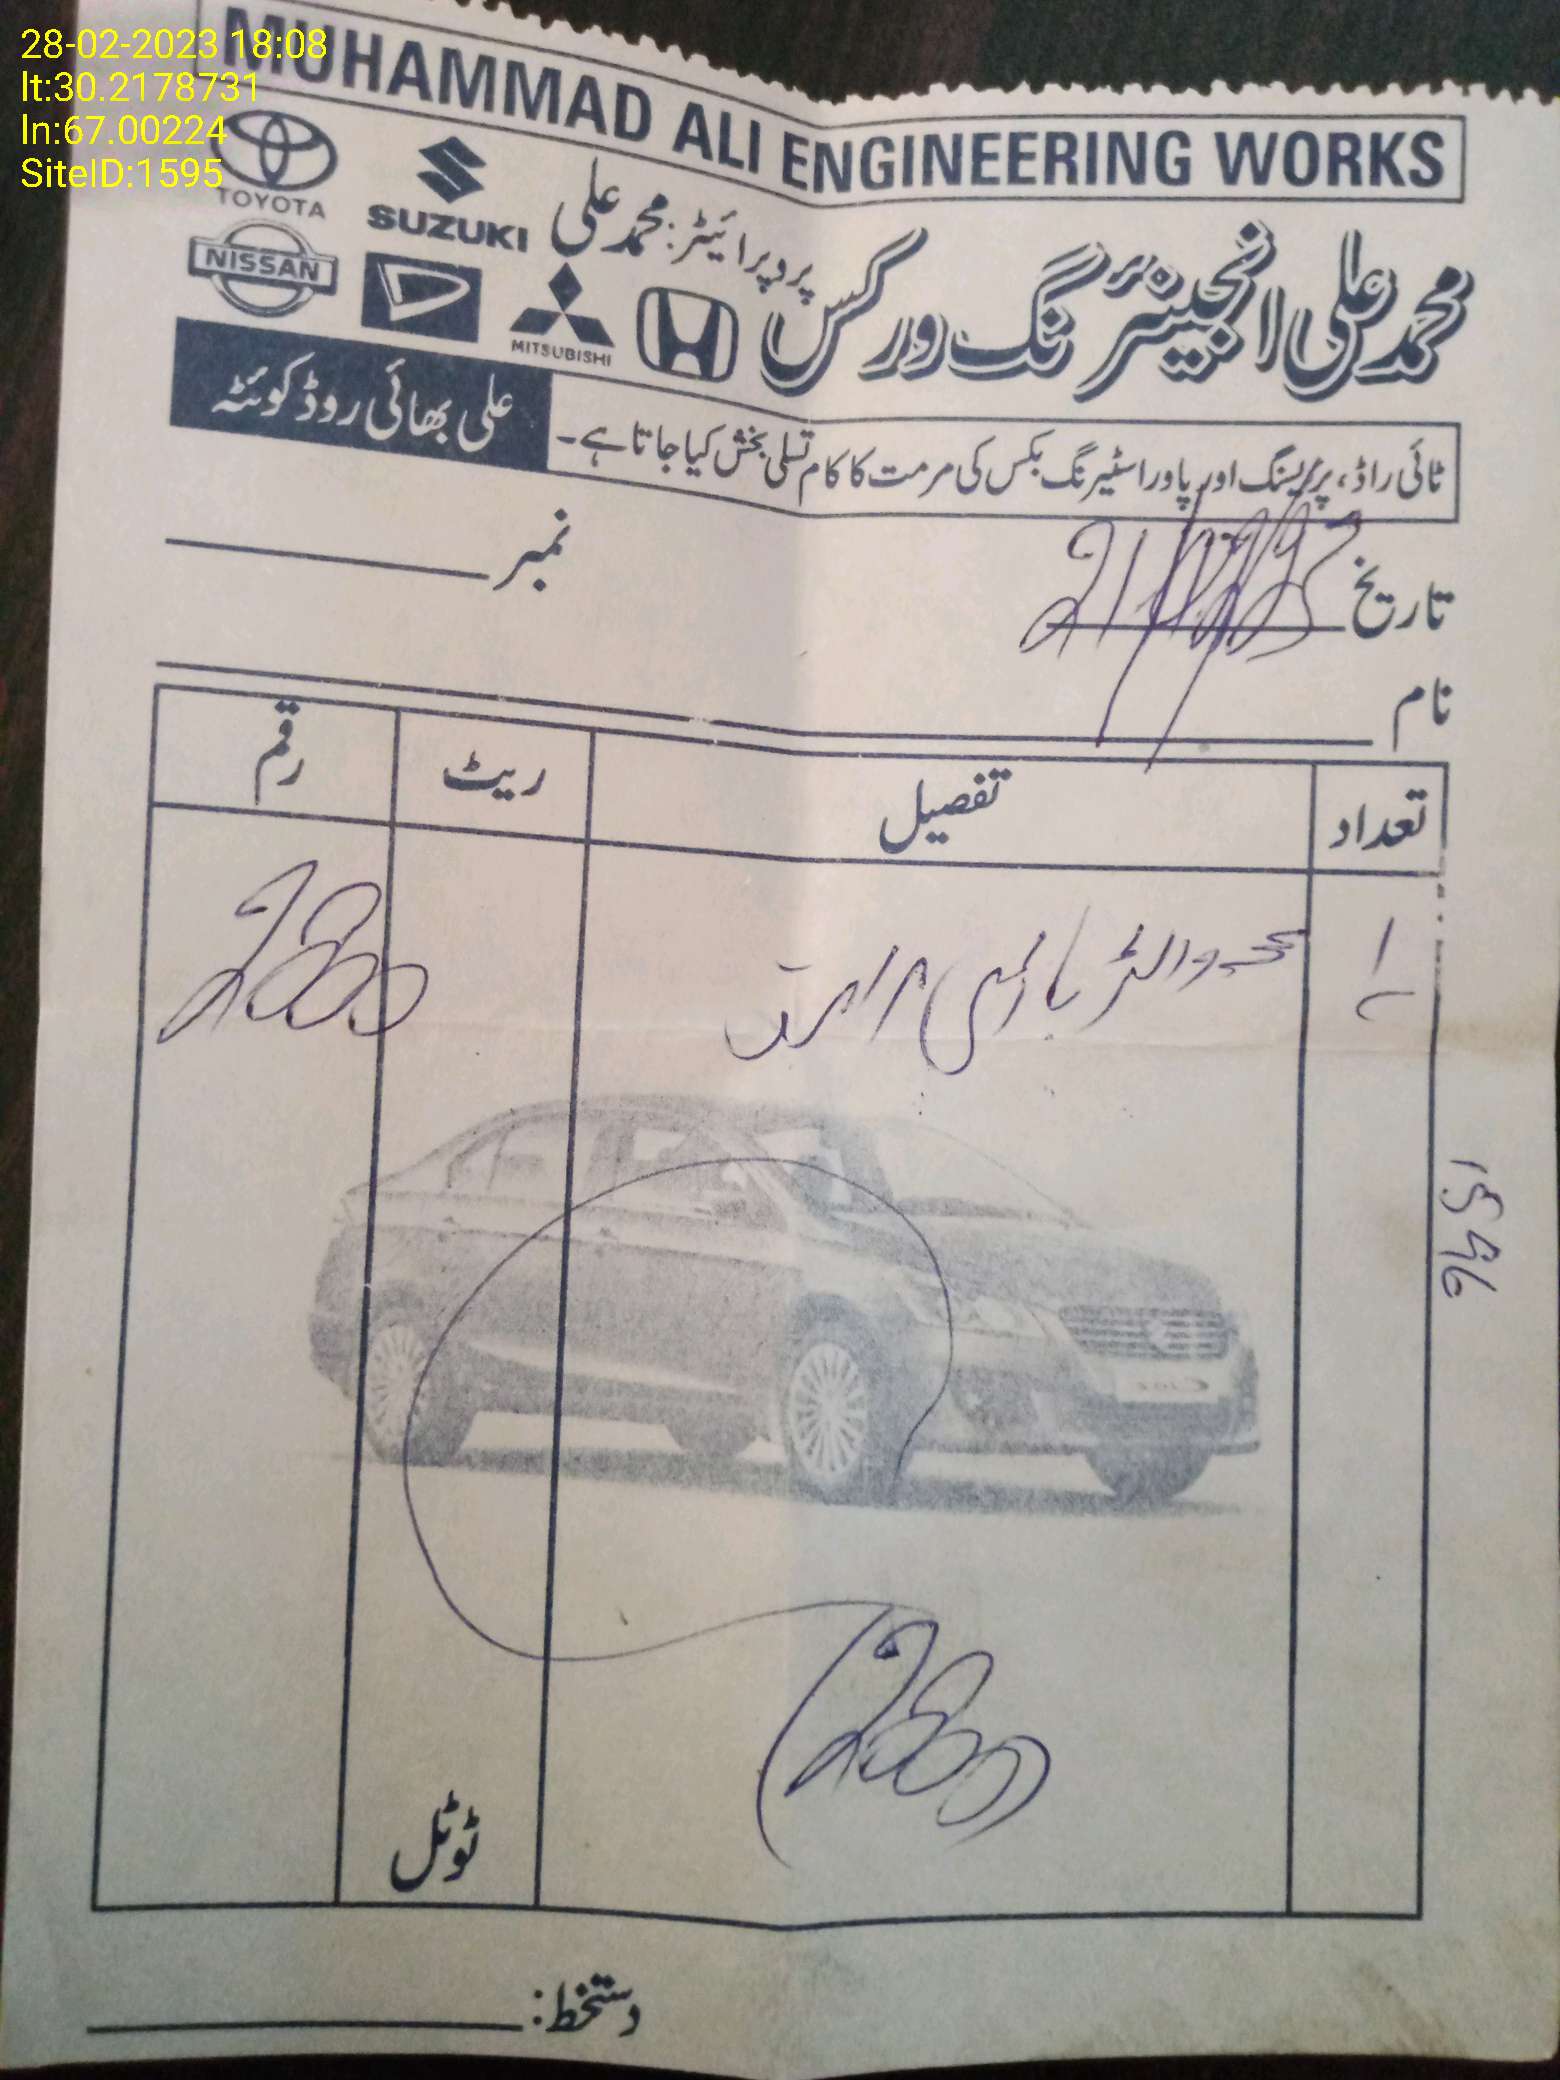 28-02-2023 18:08
lt:30.2178731
ln:67.00224
SiteID:1595
MUHAMMAD ALI ENGINEERING WORKS
TOYOTA
SUZUKI
NISSAN
MITSUBISHI
پروپرائیٹر: محمد علی
محمد علی انجینئرنگ ورکس
ٹائی راڈ، پریسنگ اور پاور اسٹیرنگ بکس کی مرمت کا کام تسلی بخش کیا جاتا ہے۔
علی بھائی روڈ کوئٹہ
نمبر
تاریخ
نام
تعداد تفصیل ریٹ رقم
1 2800
1596
2800
ٹوٹل
دستخط: